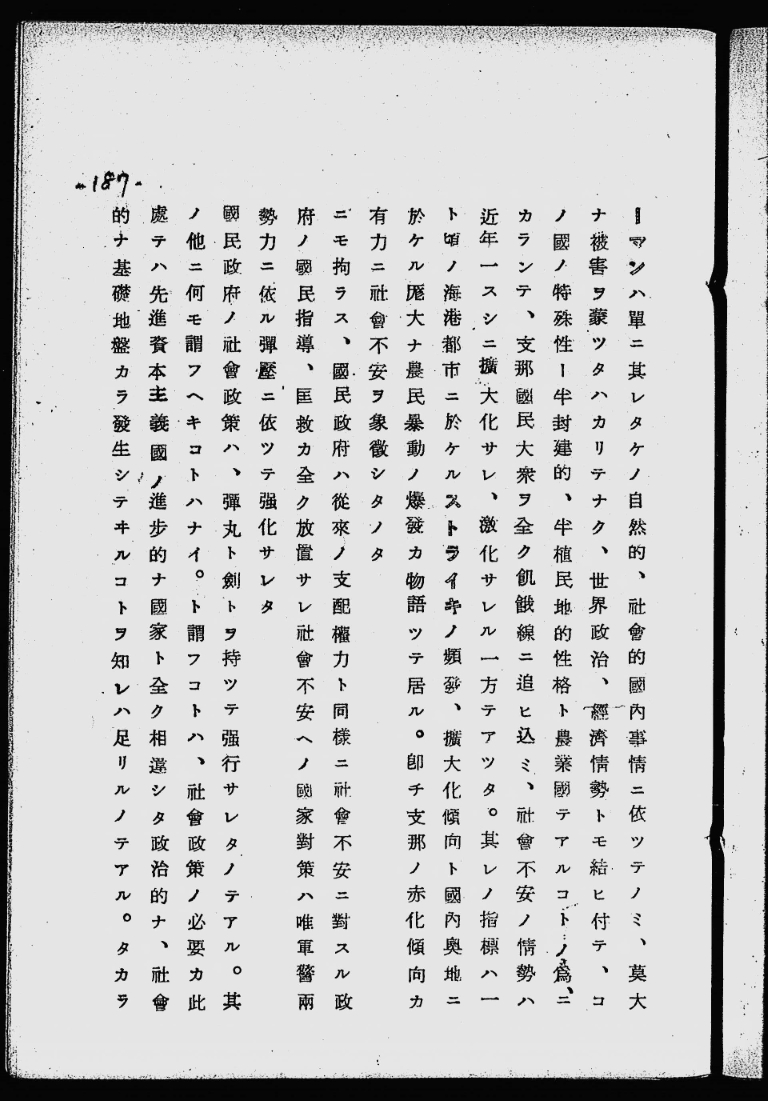 ーマンハ單ニ其レタケノ自然的、社會的國內事情ニ依ツテノミ、莫大
ナ被害ヲ蒙ツタハカリテナク、世界政治、經濟情勢トモ結ヒ付テ、コ
ノ國ノ特殊性ー半封建的、半植民地的性格ト農業國テアルコトノ爲、ニ
カランテ、支那國民大衆ヲ全ク飢餓線ニ追ヒ込ミ、社會不安ノ情勢ハ
近年一スシニ擴大化サレ、激化サレル一方テアツタ。其レノ指標ハ一
ト頃ノ海港都市ニ於ケルストライキノ頻發、擴大化傾向ト國內奧地ニ
於ケル厖大ナ農民暴動ノ爆發カ物語ツテ居ル。卽チ支那ノ赤化傾向カ
有力ニ社會不安ヲ象徵シタノタ
ニモ拘ラス、國民政府ハ從來ノ支配權力ト同樣ニ社會不安ニ對スル政
府ノ國民指導、匡救カ全ク放置サレ社會不安ヘノ國家對策ハ唯軍警兩
勢力ニ依ル彈壓ニ依ツテ强化サレタ
國民政府ノ社會政策ハ、彈丸ト劍トヲ持ツテ强行サレタノテアル。其
ノ他ニ何モ謂フヘキコトハナイ。ト謂フコトハ、社會政策ノ必要カ此
處テハ先進資本主義國ノ進步的ナ國家ト全ク相違シタ政治的ナ、社會
的ナ基礎地盤カラ發生シテヰルコトヲ知レハ足リルノテアル。タカラ
-187-